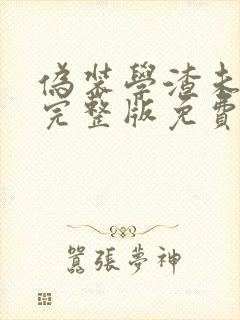 偽裝學渣未
完整版免費
囂張夢神